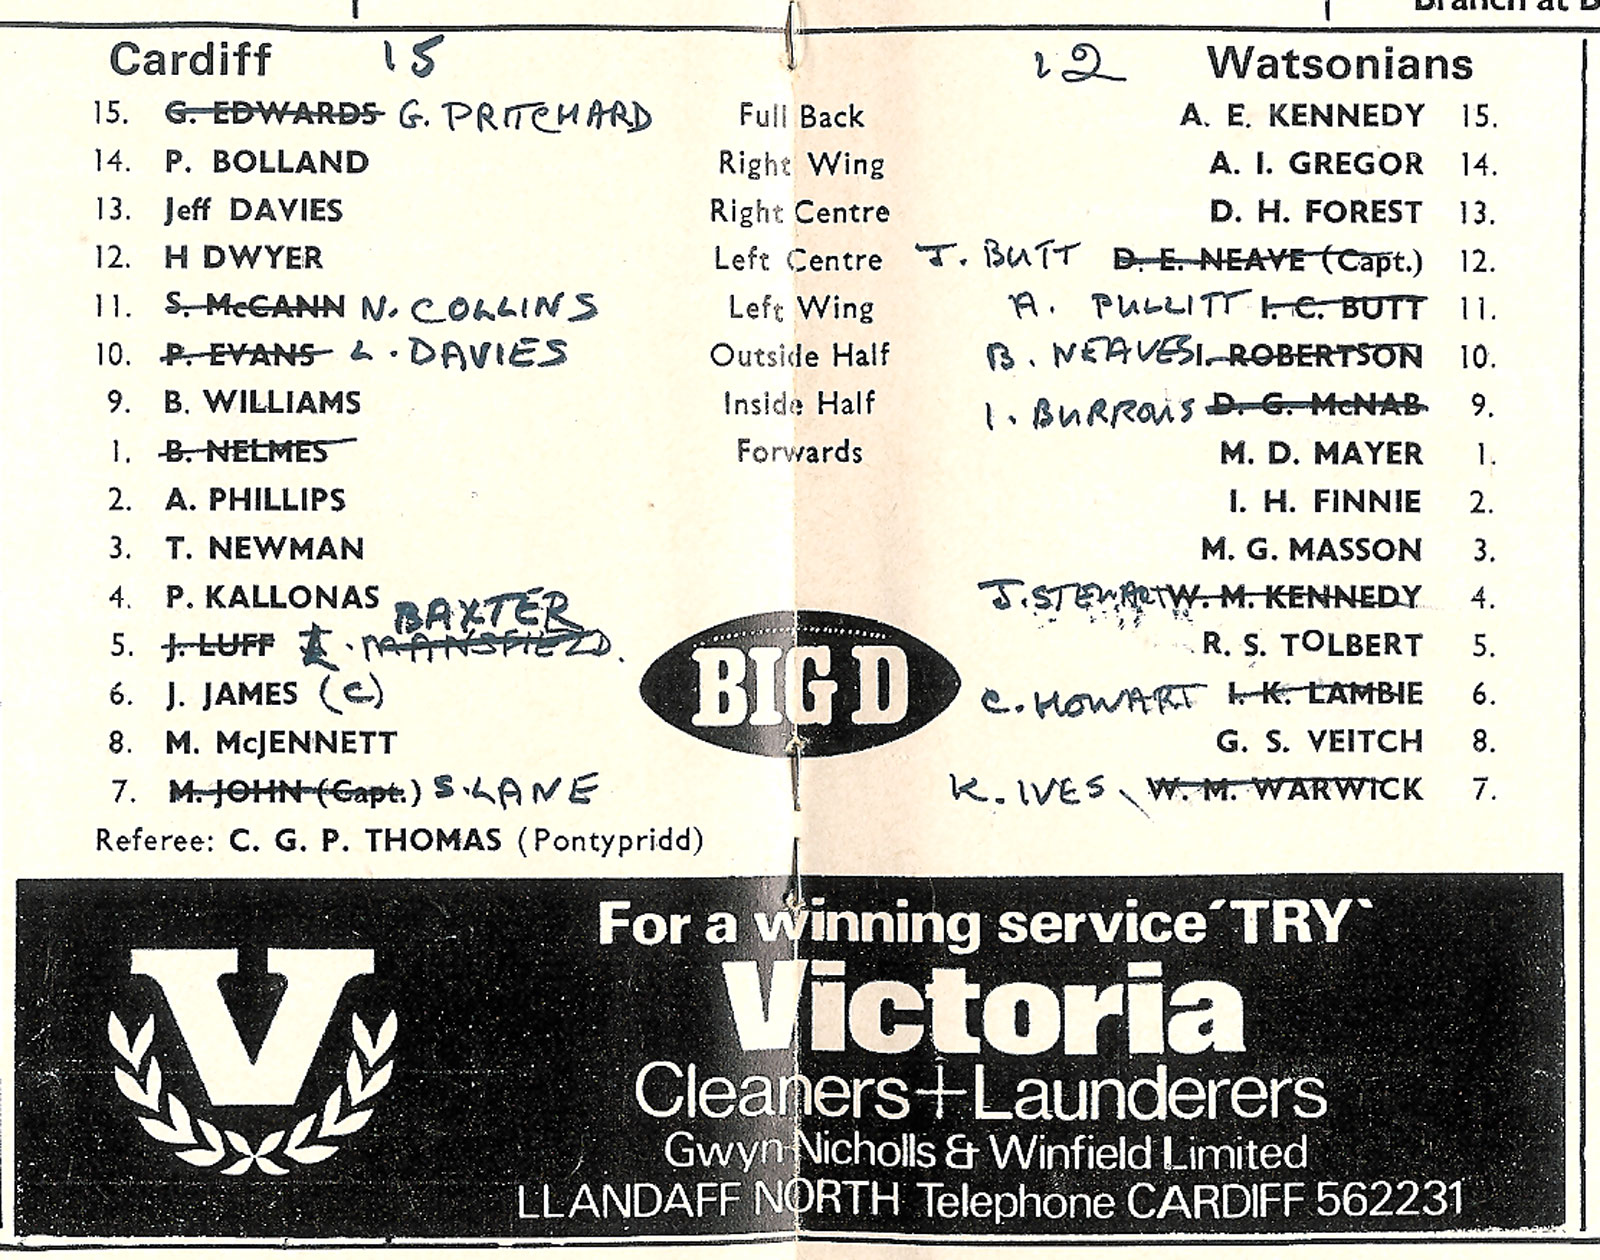 Branch at B
Cardiff 15 12 Watsonians
15. G. EDWARDS G. PRITCHARD Full Back A. E. KENNEDY 15.
14. P. BOLLAND Right Wing A. I. GREGOR 14.
13. Jeff DAVIES Right Centre D. H. FOREST 13.
12. H DWYER Left Centre J. BUTT D. E. NEAVE (Capt.) 12.
11. S. McCANN N. COLLINS Left Wing A. PULLITT I. C. BUTT 11.
10. P. EVANS L. DAVIES Outside Half B. NEAVES I. ROBERTSON 10.
9. B. WILLIAMS Inside Half I. BURROWS D. G. McNAB 9.
1. B. NELMES Forwards M. D. MAYER 1.
2. A. PHILLIPS I. H. FINNIE 2.
3. T. NEWMAN M. G. MASSON 3.
4. P. KALLONAS J. STEWART W. M. KENNEDY 4.
BAXTER
5. J. LUFF MANSFIELD. R. S. TOLBERT 5.
6. J. JAMES (C) C. HOWART I. K. LAMBIE 6.
8. M. McJENNETT G. S. VEITCH 8.
7. M. JOHN (Capt.) S. LANE K. IVES W. M. WARWICK 7.
BIG D
Referee: C. G. P. THOMAS (Pontypridd)
For a winning service ´TRY`
V Victoria
Cleaners+Launderers
Gwyn-Nicholls & Winfield Limited
LLANDAFF NORTH Telephone CARDIFF 562231